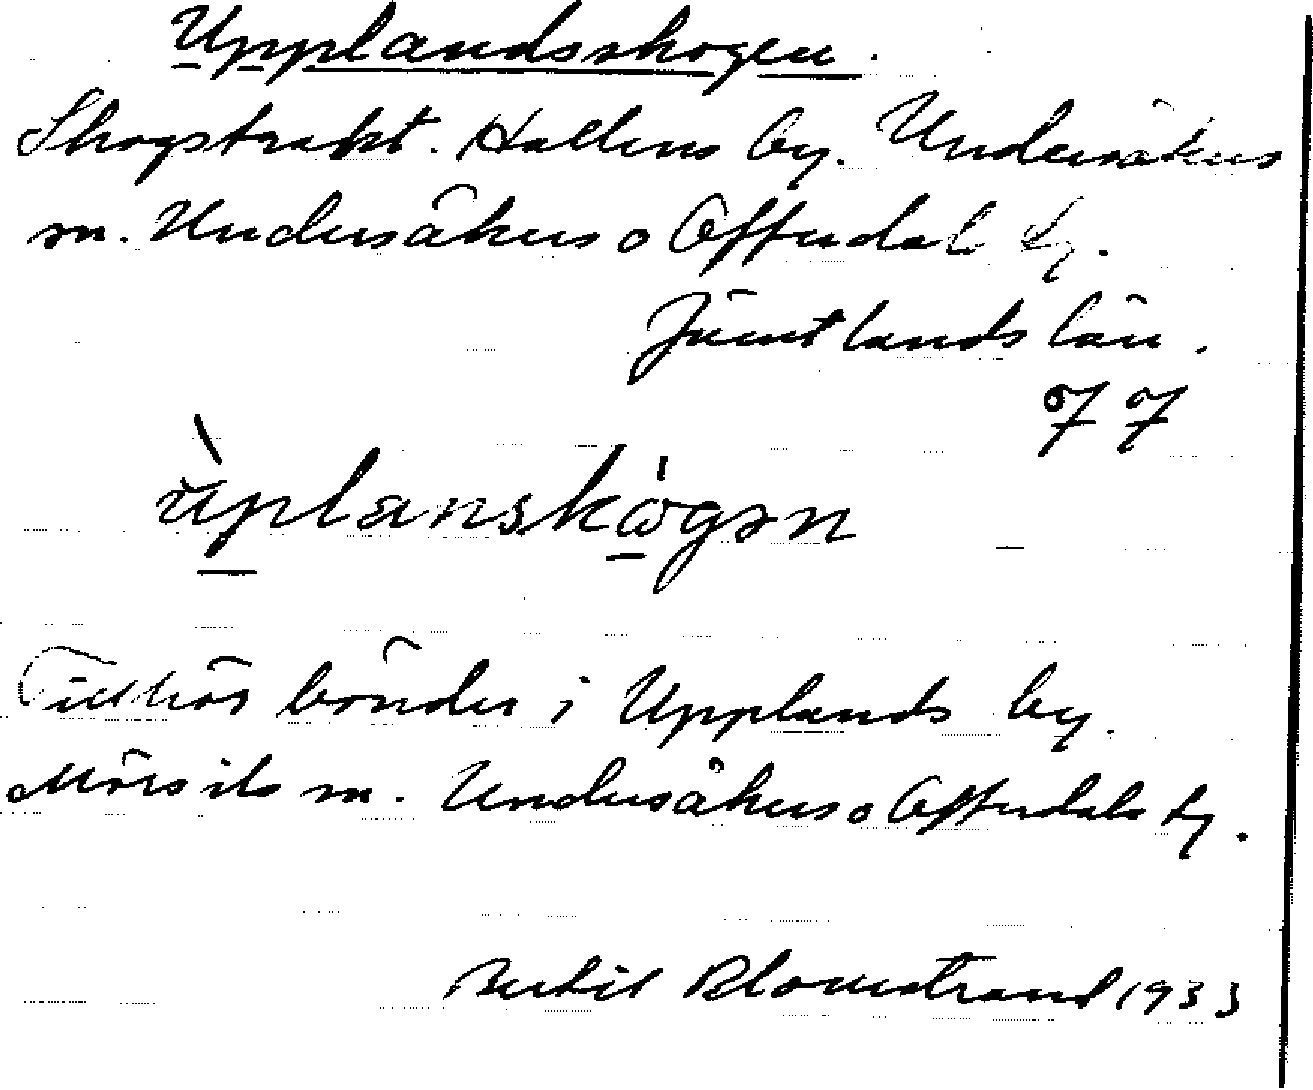 Upplandsskogen.
Skogstrakt. Hallens by. Undersåkers
sn. Undersåkers o Offerdals tg.
Jämtlands län.
77
ùplanskògən
Tillhör bönder i Upplands by.
Mörsils sn. Undersåkers o Offerdals tg.
Bertil Blomstrand 1933